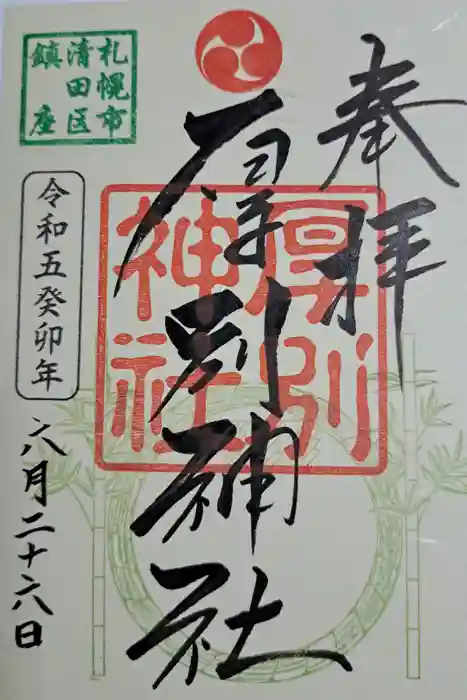 奉拝
厚別神社
厚別
神社
札幌市
清田区
鎮座
令和五癸卯年
六月二十六日